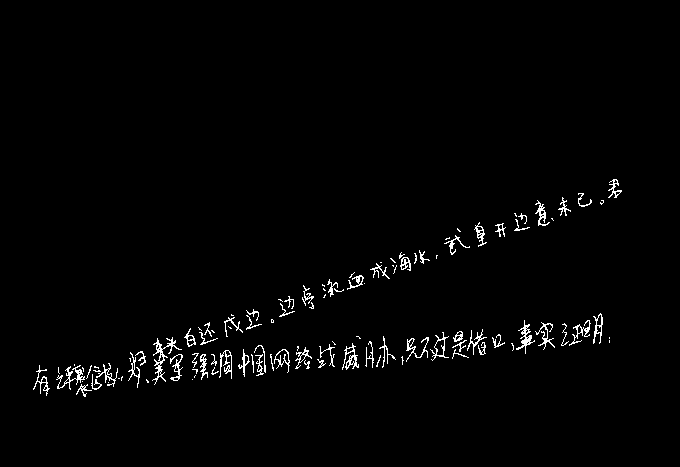 头白还戍边。边亭流血成海水,武皇开边意未已。君
有美军强调中国网络战威胁,只不过是借口,事实证明,